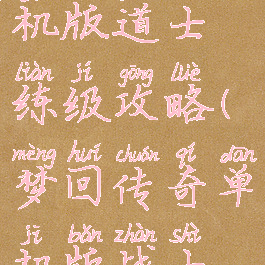 机版道士
liàn jí gōng lüè
练级攻略(
mèng huí chuán qí dān
梦回传奇单
jī bǎn zhàn shì
机版战士